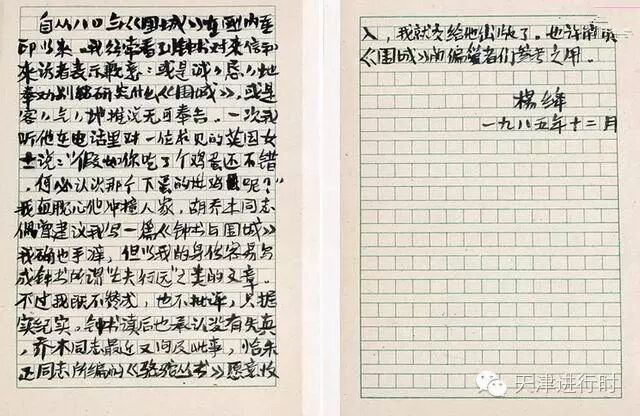 自从八〇年《围城》在国内重
印以来,我经常看到钟书对来信和
来访者表示歉意:或是诚〻恳〻地
奉劝别研究什么《围城》,或是
客〻气〻地推说无可奉告。一次我
听他在电话里对一位求见的英国女
士说:“假如你吃了个鸡蛋还不错
,何必认识那个下蛋的母鸡呢?”
我直耽心他冲撞人家,胡乔木同志
偶曾建议我写一篇《钟书与围城》
我确也手痒,但以我的身份容易写
成钟书所谓“亡夫行述”之类的文章。
不过我既不,也不批评,只据
实纪实,钟书读后也承认没有失真
,乔木同志最近又问及此事,恰朱
正同志所编的《骆驼丛书》愿意收
入,我就交给他出版了。也许
《围城》的偏爱者们参考之用。
杨绛
一九八五年十二月
天津进行时